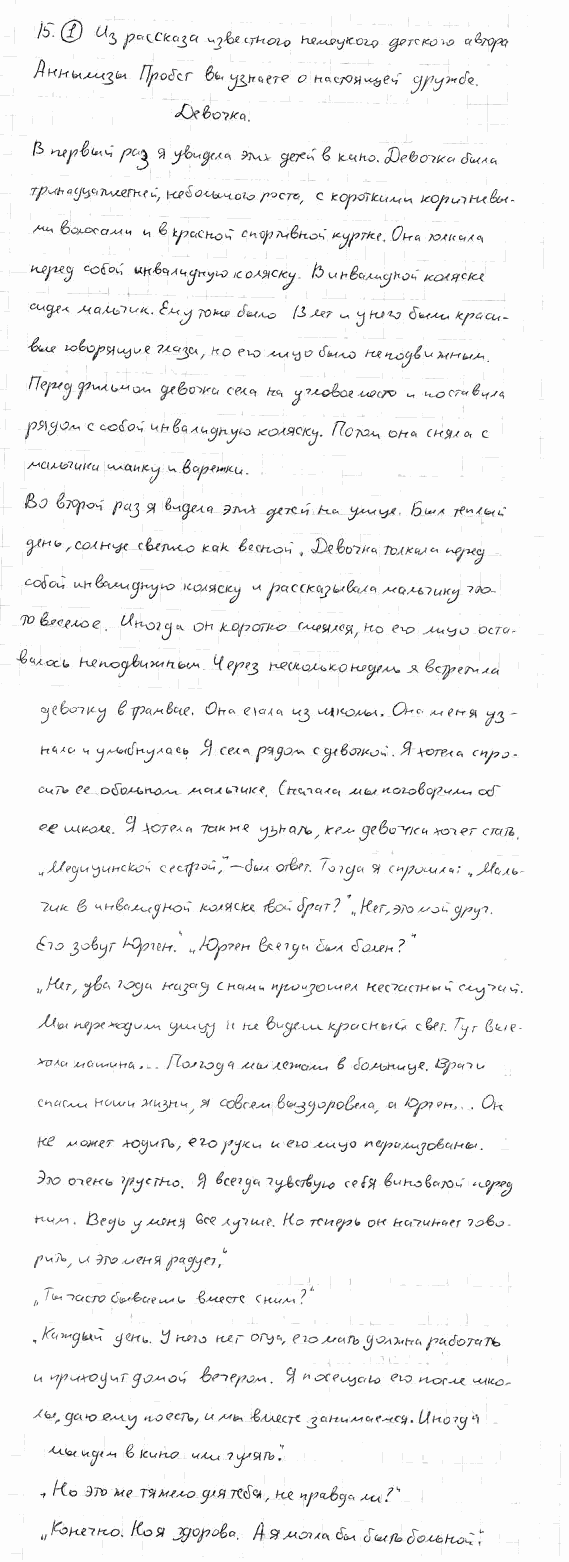 15. ① Из рассказа известного немецкого детского автора
Аннылизы Пробст вы узнаете о настоящей дружбе.
Девочка.
В первый раз я увидела этих детей в кино. Девочка была
тринадцатилетней, небольшого роста, с короткими коричневы-
ми волосами и в красной спортивной куртке. Она толкала
перед собой инвалидную коляску. В инвалидной коляске
сидел мальчик. Ему тоже было 13 лет и у него были краси-
вые говорящие глаза, но его лицо было неподвижным.
Перед фильмом девочка села на угловое место и поставила
рядом с собой инвалидную коляску. Потом она сняла с
мальчика шапку и варежки.
Во второй раз я видела этих детей на улице. Был теплый
день, солнце светило как весной. Девочка толкала перед
собой инвалидную коляску и рассказывала мальчику что-
то веселое. Иногда он коротко смеялся, но его лицо оста-
валось неподвижным. Через несколько недель я встретила
девочку в трамвае. Она ехала из школы. Она меня уз-
нала и улыбнулась. Я села рядом с девочкой. Я хотела спро-
сить ее о больном мальчике. Сначала мы поговорили об
ее школе. Я хотела также узнать, кем девочка хочет стать.
„Медицинской сестрой," – был ответ. Тогда я спросила: „Маль-
чик в инвалидной коляске твой брат?" „Нет, это мой друг.
Его зовут Юрген." „Юрген всегда был болен?"
„Нет, два года назад с нами произошел несчастный случай.
Мы переходили улицу и не видели красный свет. Тут выe-
хала машина... Полгода мы лежали в больнице. Врачи
спасли наши жизни, я совсем выздоровела, а Юрген... Он
не может ходить, его руки и его лицо парализованы.
Это очень грустно. Я всегда чувствую себя виноватой перед
ним. Ведь у меня все лучше. Но теперь он начинает гово-
рить, и это меня радует."
„Ты часто бываешь вместе с ним?"
„Каждый день. У него нет отца, его мать должна работать
и приходит домой вечером. Я посещаю его после шко-
лы, даю ему поесть, и мы вместе занимаемся. Иногда
мы идем в кино или гулять."
„Но это же тяжело для тебя, не правда ли?"
„Конечно. Но я здорова. А я могла бы быть больной."